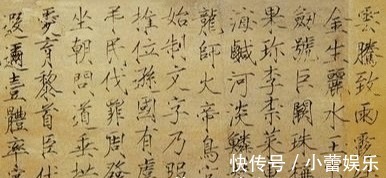 雲騰致雨露
金生麗水
劍號巨闕珠稱
果珎李柰菜
海鹹河淡鱗
龍師火帝鳥
始制文字乃服
推位遜國有虞
弔民伐罪周發
坐朝問道垂拱
愛育黎首臣伏
遐邇壹體率賓
快传号 / 小蕾娱乐